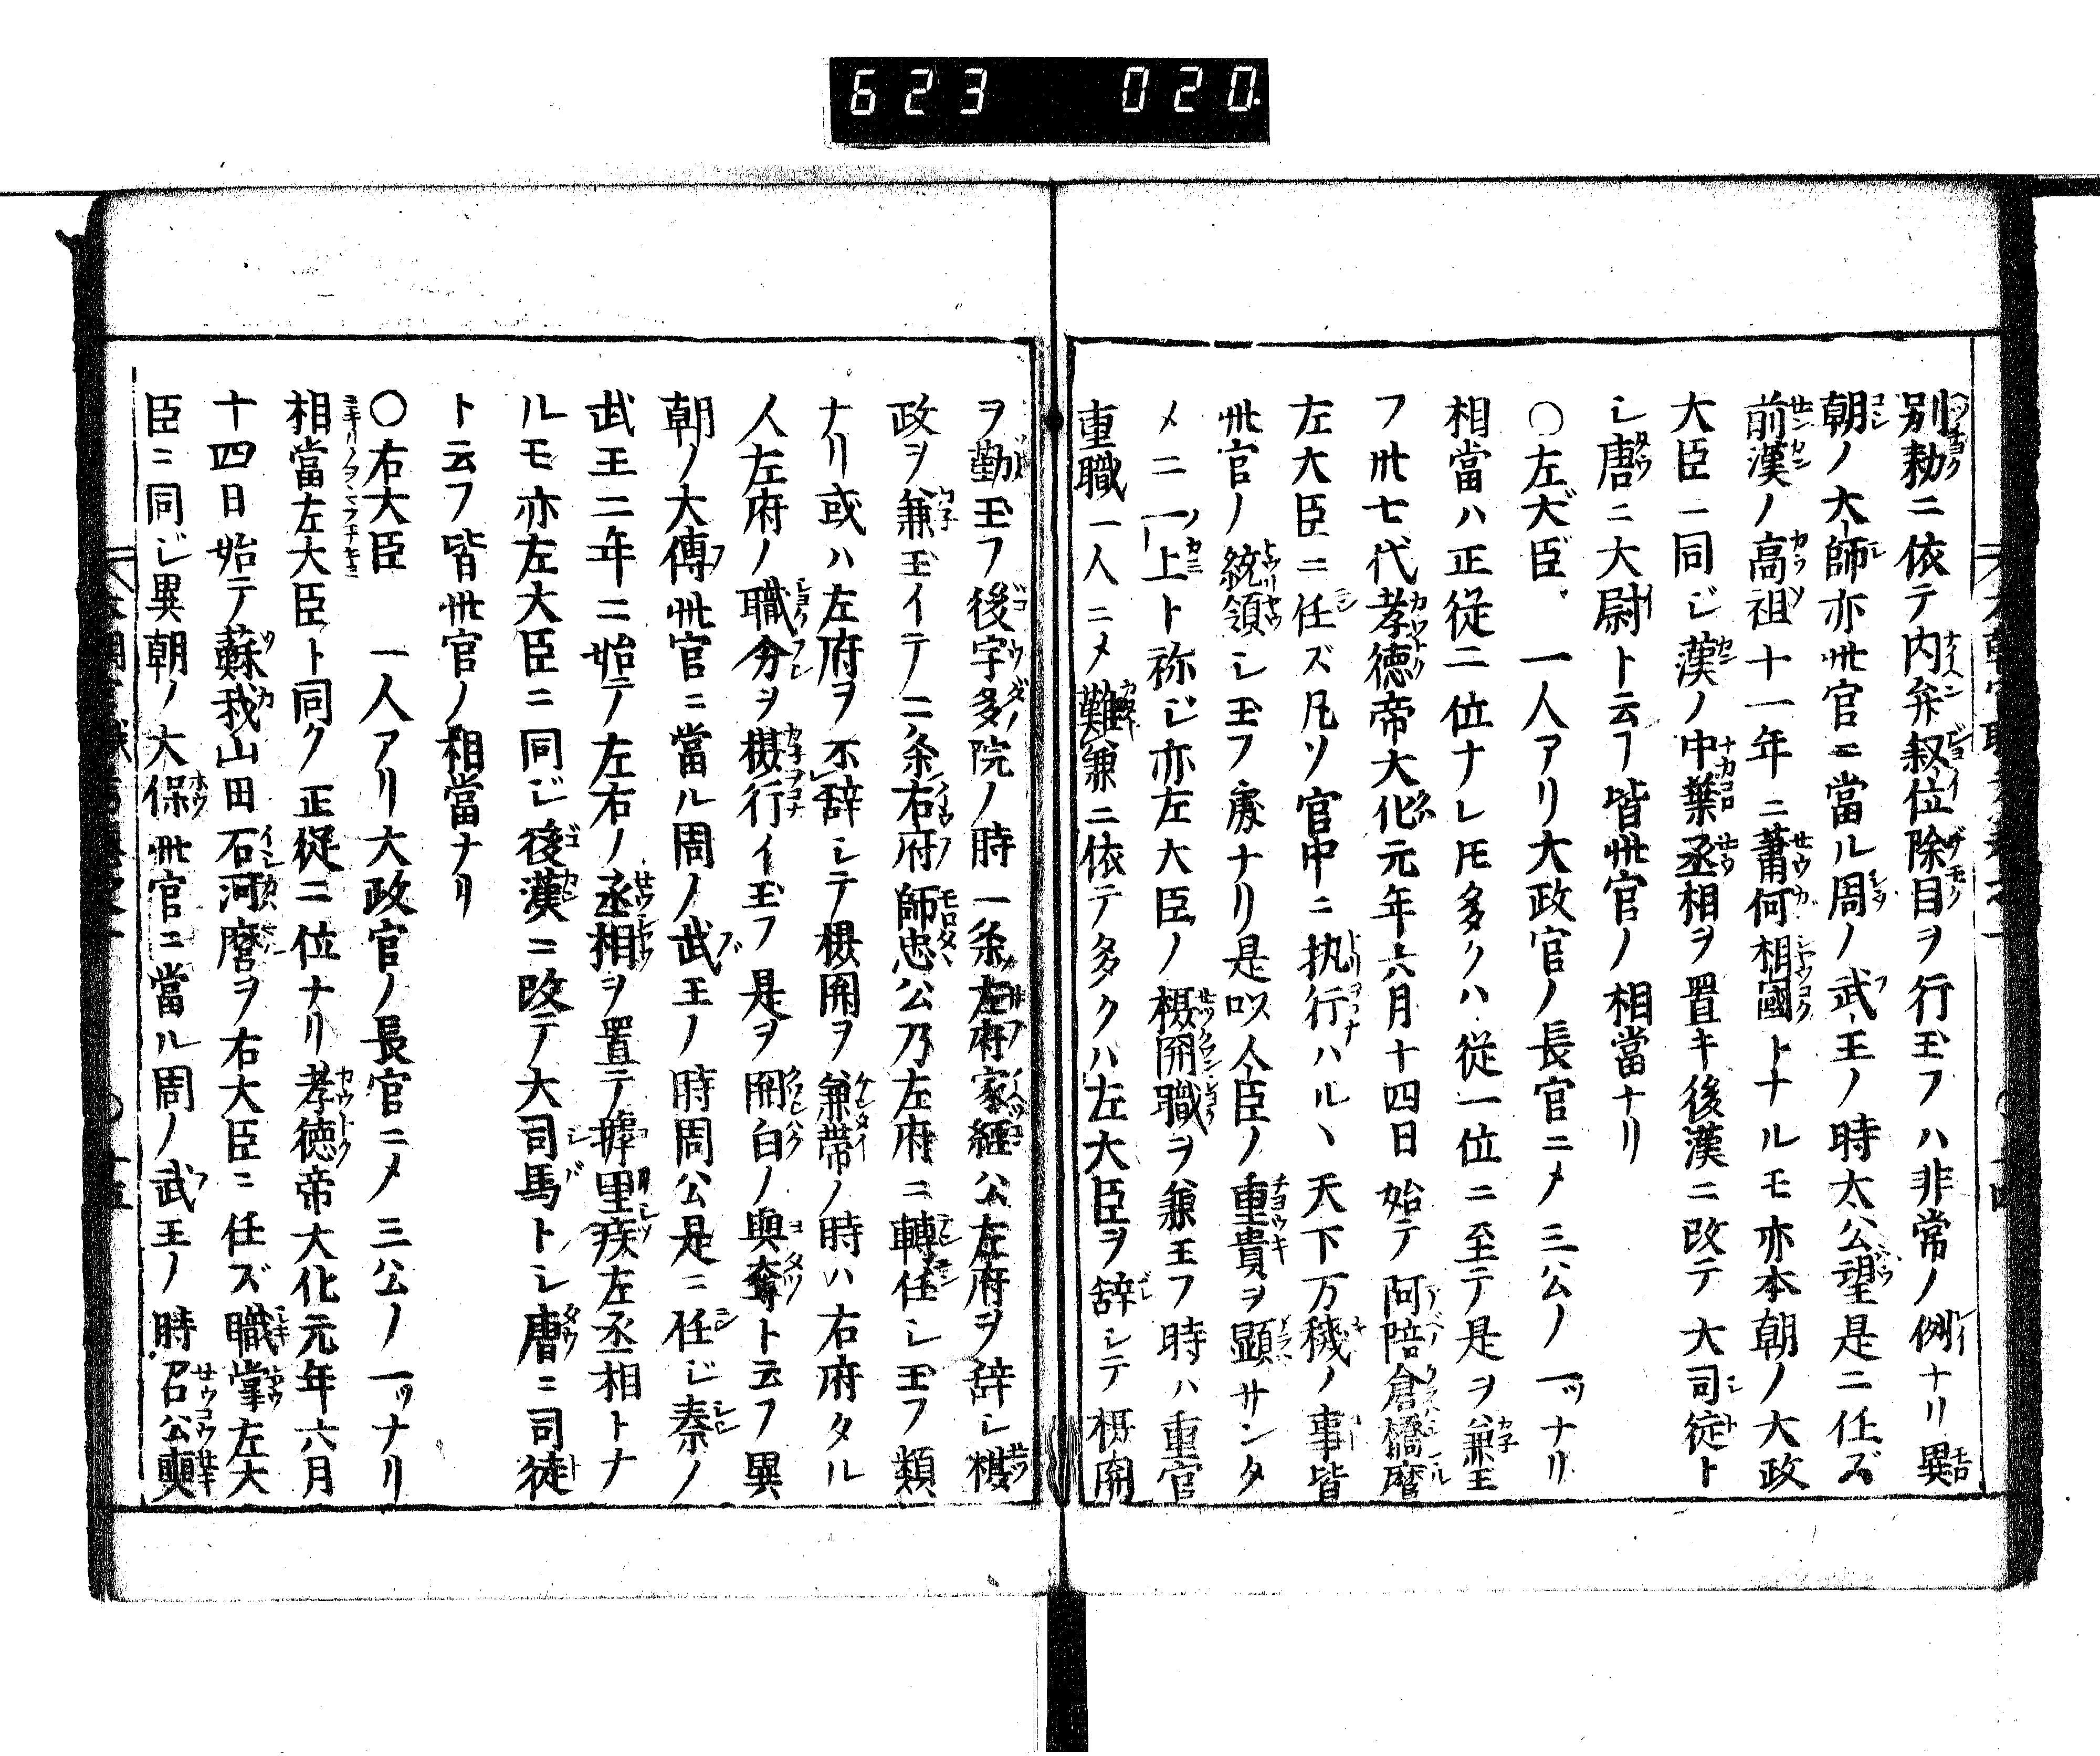 623 020
別勅ニ依テ内弁叙位除目ヲ行玉フハ非常ノ例ナリ異
朝ノ大師亦此官ニ當ル周ノ武王ノ時太公望是ニ任ズ
前漢ノ高祖十一年ニ蕭何相國トナルモ亦本朝ノ大政
大臣ニ同ジ漢ノ中葉丞相ヲ置キ後漢ニ改テ大司徒ト
シ唐ニ大尉ト云フ皆此官ノ相當ナリ
〇左大臣 一人アリ大政官ノ長官ニメ三公ノ一ッナリ
相當ハ正従二位ナレ𪜈多クハ従一位ニ至テ是ヲ兼玉
フ卅七代孝徳帝大化元年六月十四日始テ阿陪倉橋麿
左大臣ニ任ズ凡ソ官中ニ执行ハルヽ天下万機ノ事皆
此官ノ統領シ玉フ處ナリ是以人臣ノ重貴ヲ顕サンタ
メニ一ノ上ト称ジ亦左大臣ノ摂関職ヲ兼玉フ時ハ重官
重職一人ニメ難兼ニ依テ多クハ左大臣ヲ辞シテ摂関
ヲ勤玉フ後宇多院ノ時一条左府家經公左府ヲ辞シ摂
政ヲ兼玉イテ二条右府師忠公乃左府ニ轉任シ玉フ類
ナリ或ハ左府ヲ不辞シテ摂関ヲ兼帯ノ時ハ右府タル
人左府ノ職分ヲ摂行イ玉フ是ヲ関白ノ與奪ト云フ異
朝ノ大傅此官ニ當ル周ノ武王ノ時周公是ニ任ジ秦ノ
武王二年ニ始テ左右ノ丞相ヲ置テ樗里疾左丞相トナ
ルモ亦左大臣ニ同ジ後漢ニ改テ大司馬トシ唐ニ司徒
ト云フ皆此官ノ相當ナリ
〇右大臣 一人アリ大政官ノ長官ニメ三公ノ一ッナリ
相當左大臣ト同ク正従二位ナリ孝徳帝大化元年六月
十四日始テ蘇我山田石河麿ヲ右大臣ニ任ズ職掌左大
臣ニ同ジ異朝ノ大保此官ニ當ル周ノ武王ノ時召公奭